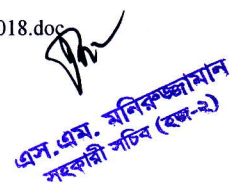 018.doc
এস.এম. মনিরুজ্জামান
সহকারী সচিব (হজ্জ-২)